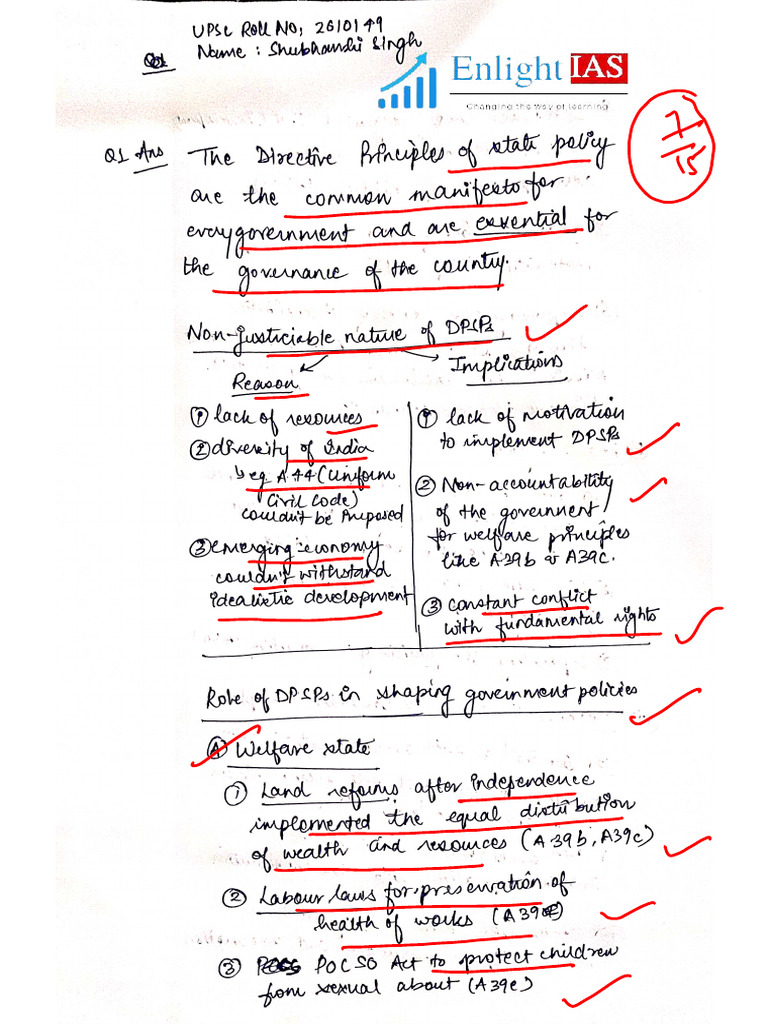 UPSC Roll NO, 2610149
Name : Shubhandhi Singh
Enlight IAS
Changing the way of learning
7/15
Q1 Ans The Directive Principles of state policy
are the common manifesto for
every government and are essential for
the governance of the country.
Non-justiciable nature of DPSPs
Reason
Implications
① lack of resources
② diversity of India
↳ eg A 44 (Uniform
Civil Code)
couldn't be Proposed
③ emerging economy
couldn't withstand
idealistic development
① lack of motivation
to implement DPSPs
② Non-accountability
of the government
for welfare principles
like A39b & A39c.
③ constant conflict
with fundamental rights
Role of DPSPs in shaping government policies
Ⓐ Welfare state
① Land reforms after independence
implemented the equal distribution
of wealth and resources (A 39b, A39c)
② Labour laws for preservation of
health of works (A39e)
③ POCSO Act to protect children
from sexual about (A39e)